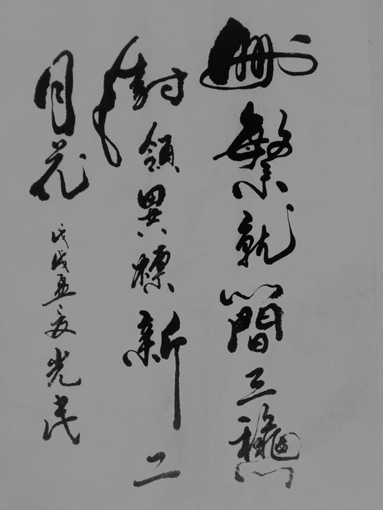 刪繁就簡三穐
樹領異標新二
月花 戊戌孟夏光民